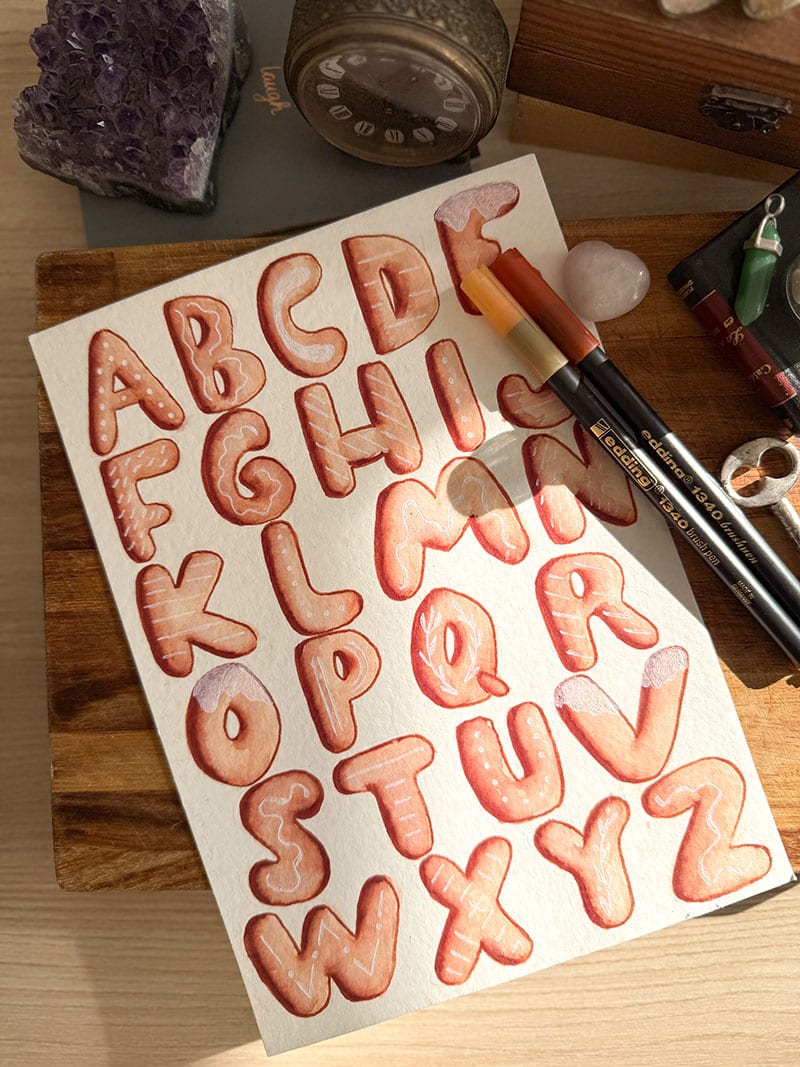 laugh
A B C D E
F G H I J
K L M N
O P Q R
S T U V
W X Y Z
edding® 1340 brush pen
edding® 1340 brushpen
MADE IN GERMANY